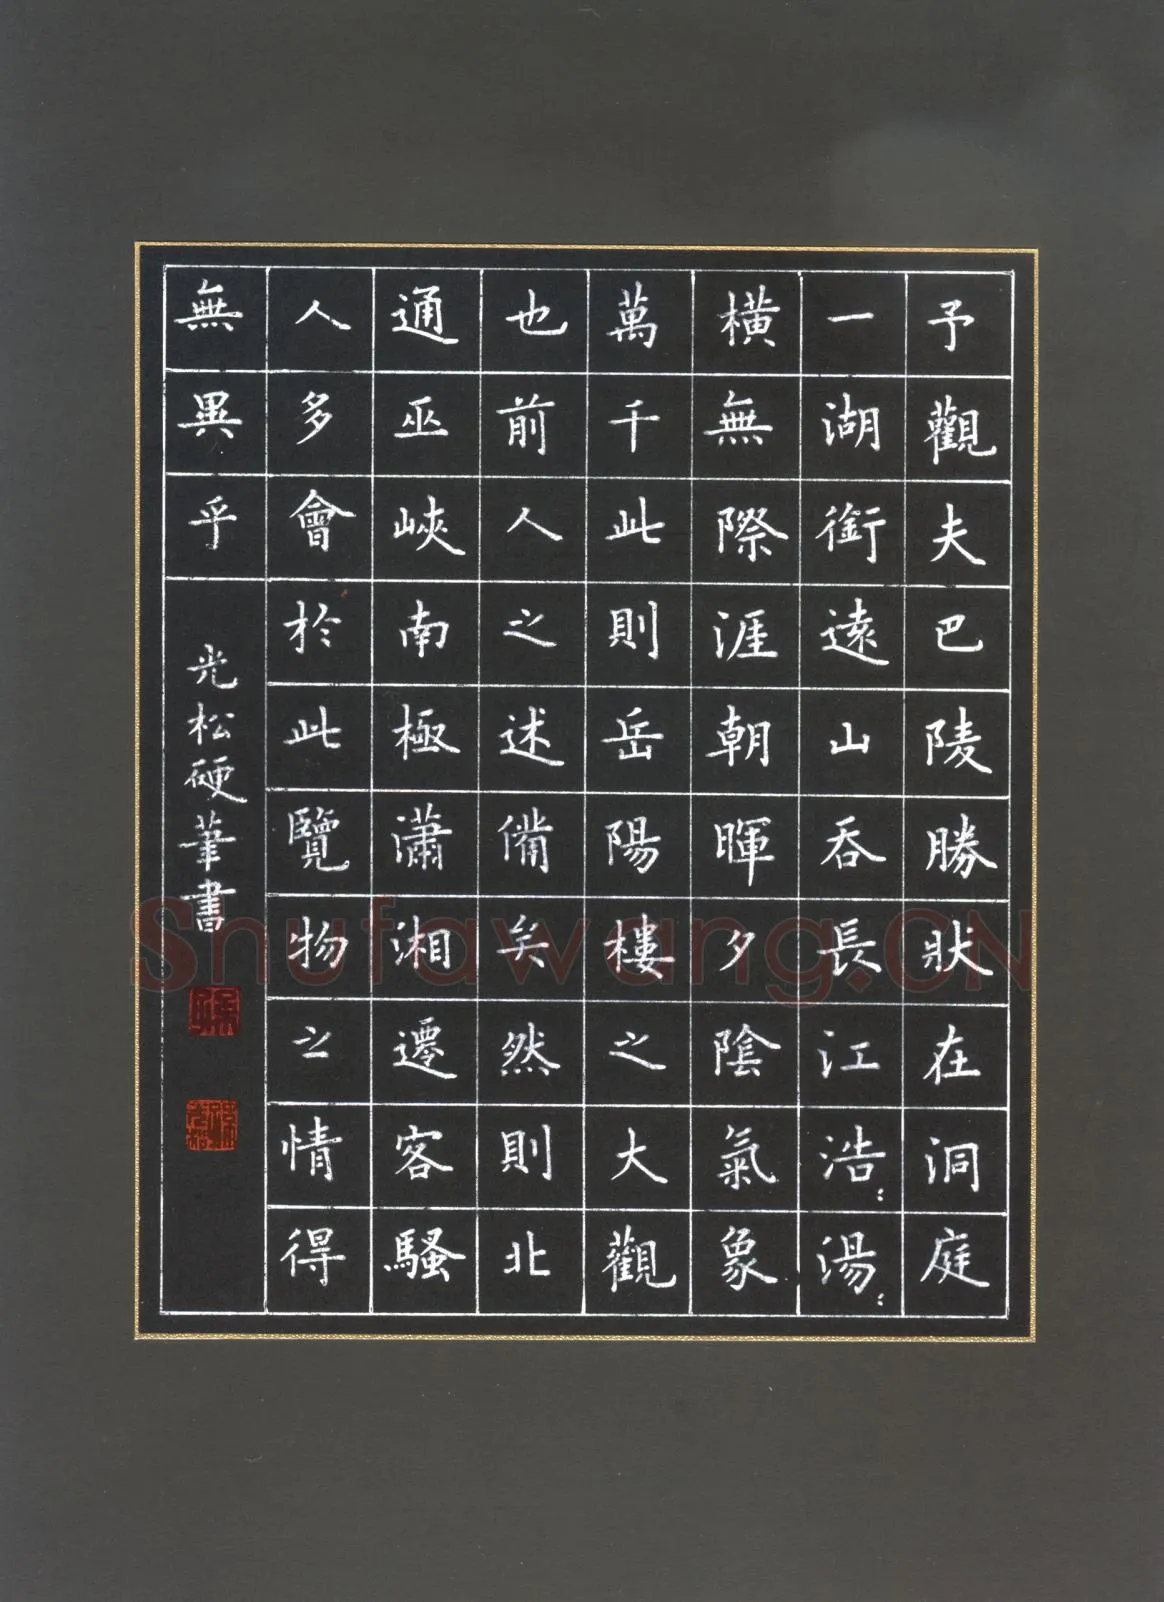 予觀夫巴陵勝狀在洞庭
一湖銜遠山吞長江浩：湯：
橫無際涯朝暉夕陰氣象
萬千此則岳陽樓之大觀
也前人之述備矣然則北
通巫峽南極瀟湘遷客騷
人多會於此覽物之情得
無異乎
光松硬筆書
Shufawang.CN